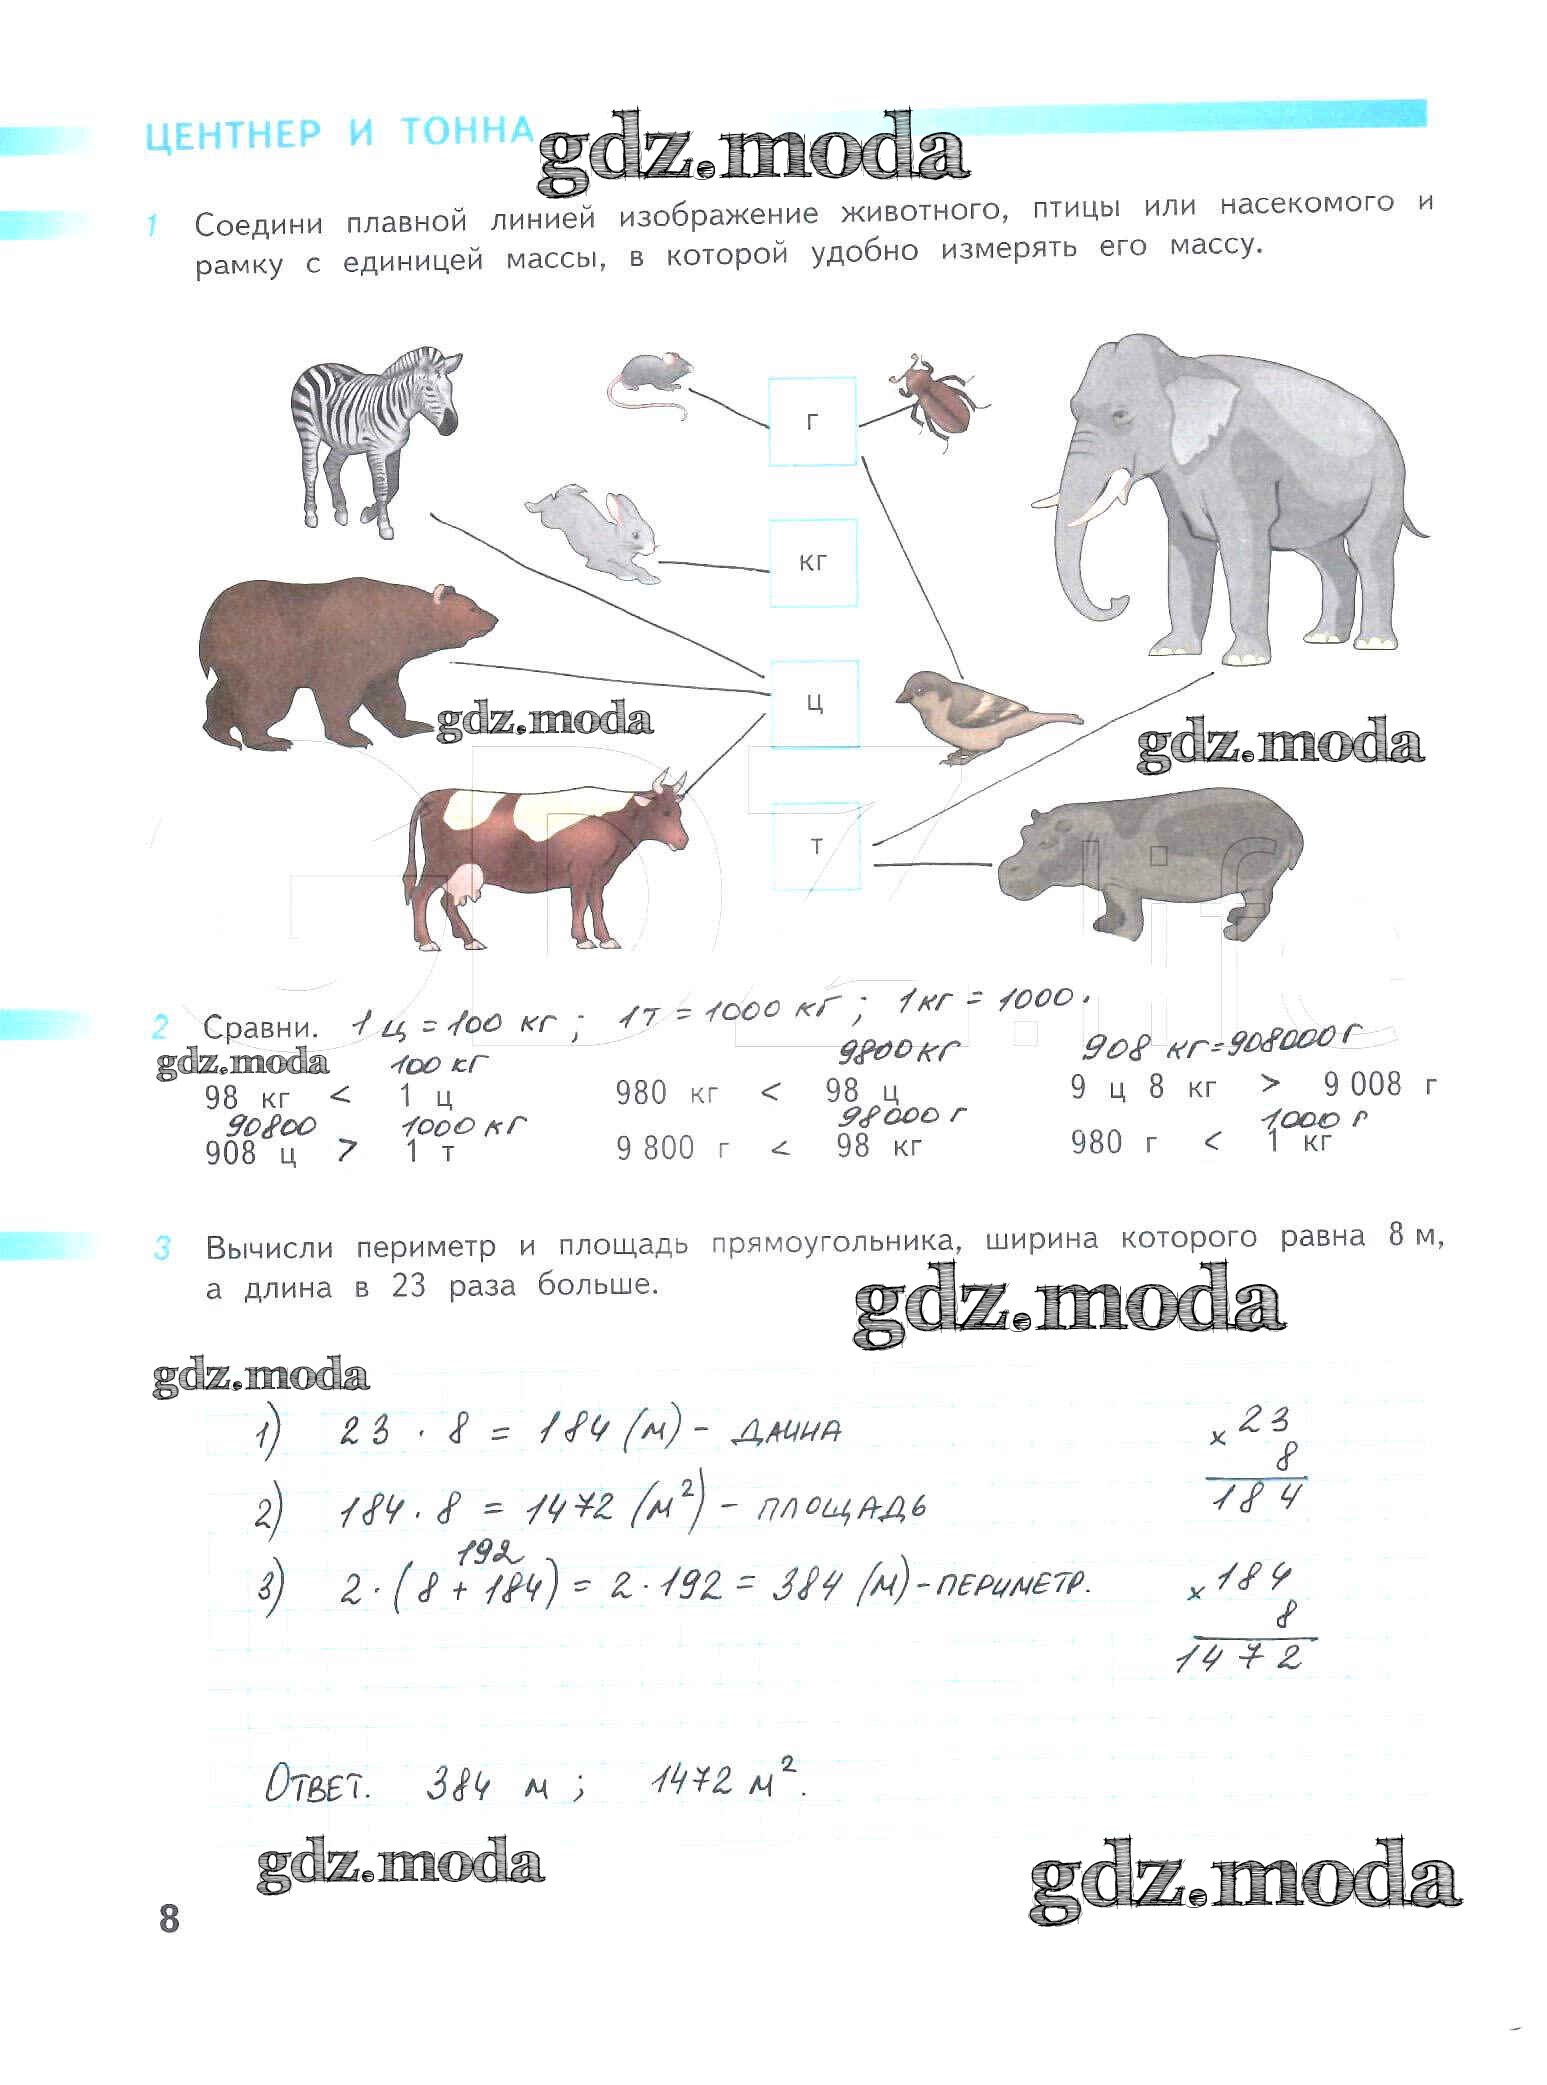 ЦЕНТНЕР И ТОННА gdz.moda
1 Соедини плавной линией изображение животного, птицы или насекомого и
рамку с единицей массы, в которой удобно измерять его массу.
г
кг
ц
gdz.moda
gdz.moda
т
2 Сравни. 1 ц = 100 кг ; 1т = 1000 кг ; 1кг = 1000.
gdz.moda 100 кг 9800 кг 908 кг = 908000 г
98 кг < 1 ц 980 кг < 98 ц 9 ц 8 кг > 9 008 г
90800 1000 кг 98000 г 1000 г
908 ц > 1 т 9 800 г < 98 кг 980 г < 1 кг
3 Вычисли периметр и площадь прямоугольника, ширина которого равна 8 м,
а длина в 23 раза больше.
gdz.moda
gdz.moda
1) 23 · 8 = 184 (м) - ДЛИНА × 23
8
184
2) 184 · 8 = 1472 (м²) - ПЛОЩАДЬ
192
3) 2 · (8 + 184) = 2 · 192 = 384 (м) - ПЕРИМЕТР. × 184
8
1472
ОТВЕТ. 384 м ; 1472 м².
gdz.moda
gdz.moda
8